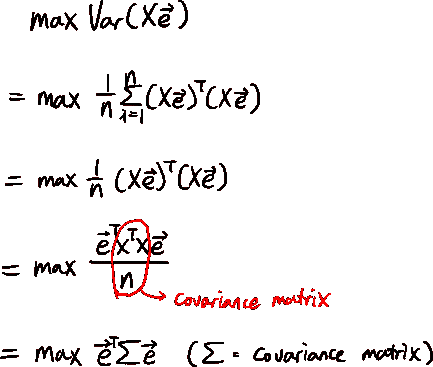 max Var(Xe⃗)
= max 1/n Σ_{i=1}^{n} (Xe⃗)ᵀ(Xe⃗)
= max 1/n (Xe⃗)ᵀ(Xe⃗)
= max e⃗ᵀXᵀXe⃗ / n
→ covariance matrix
= max e⃗ᵀΣe⃗ (Σ = covariance matrix)